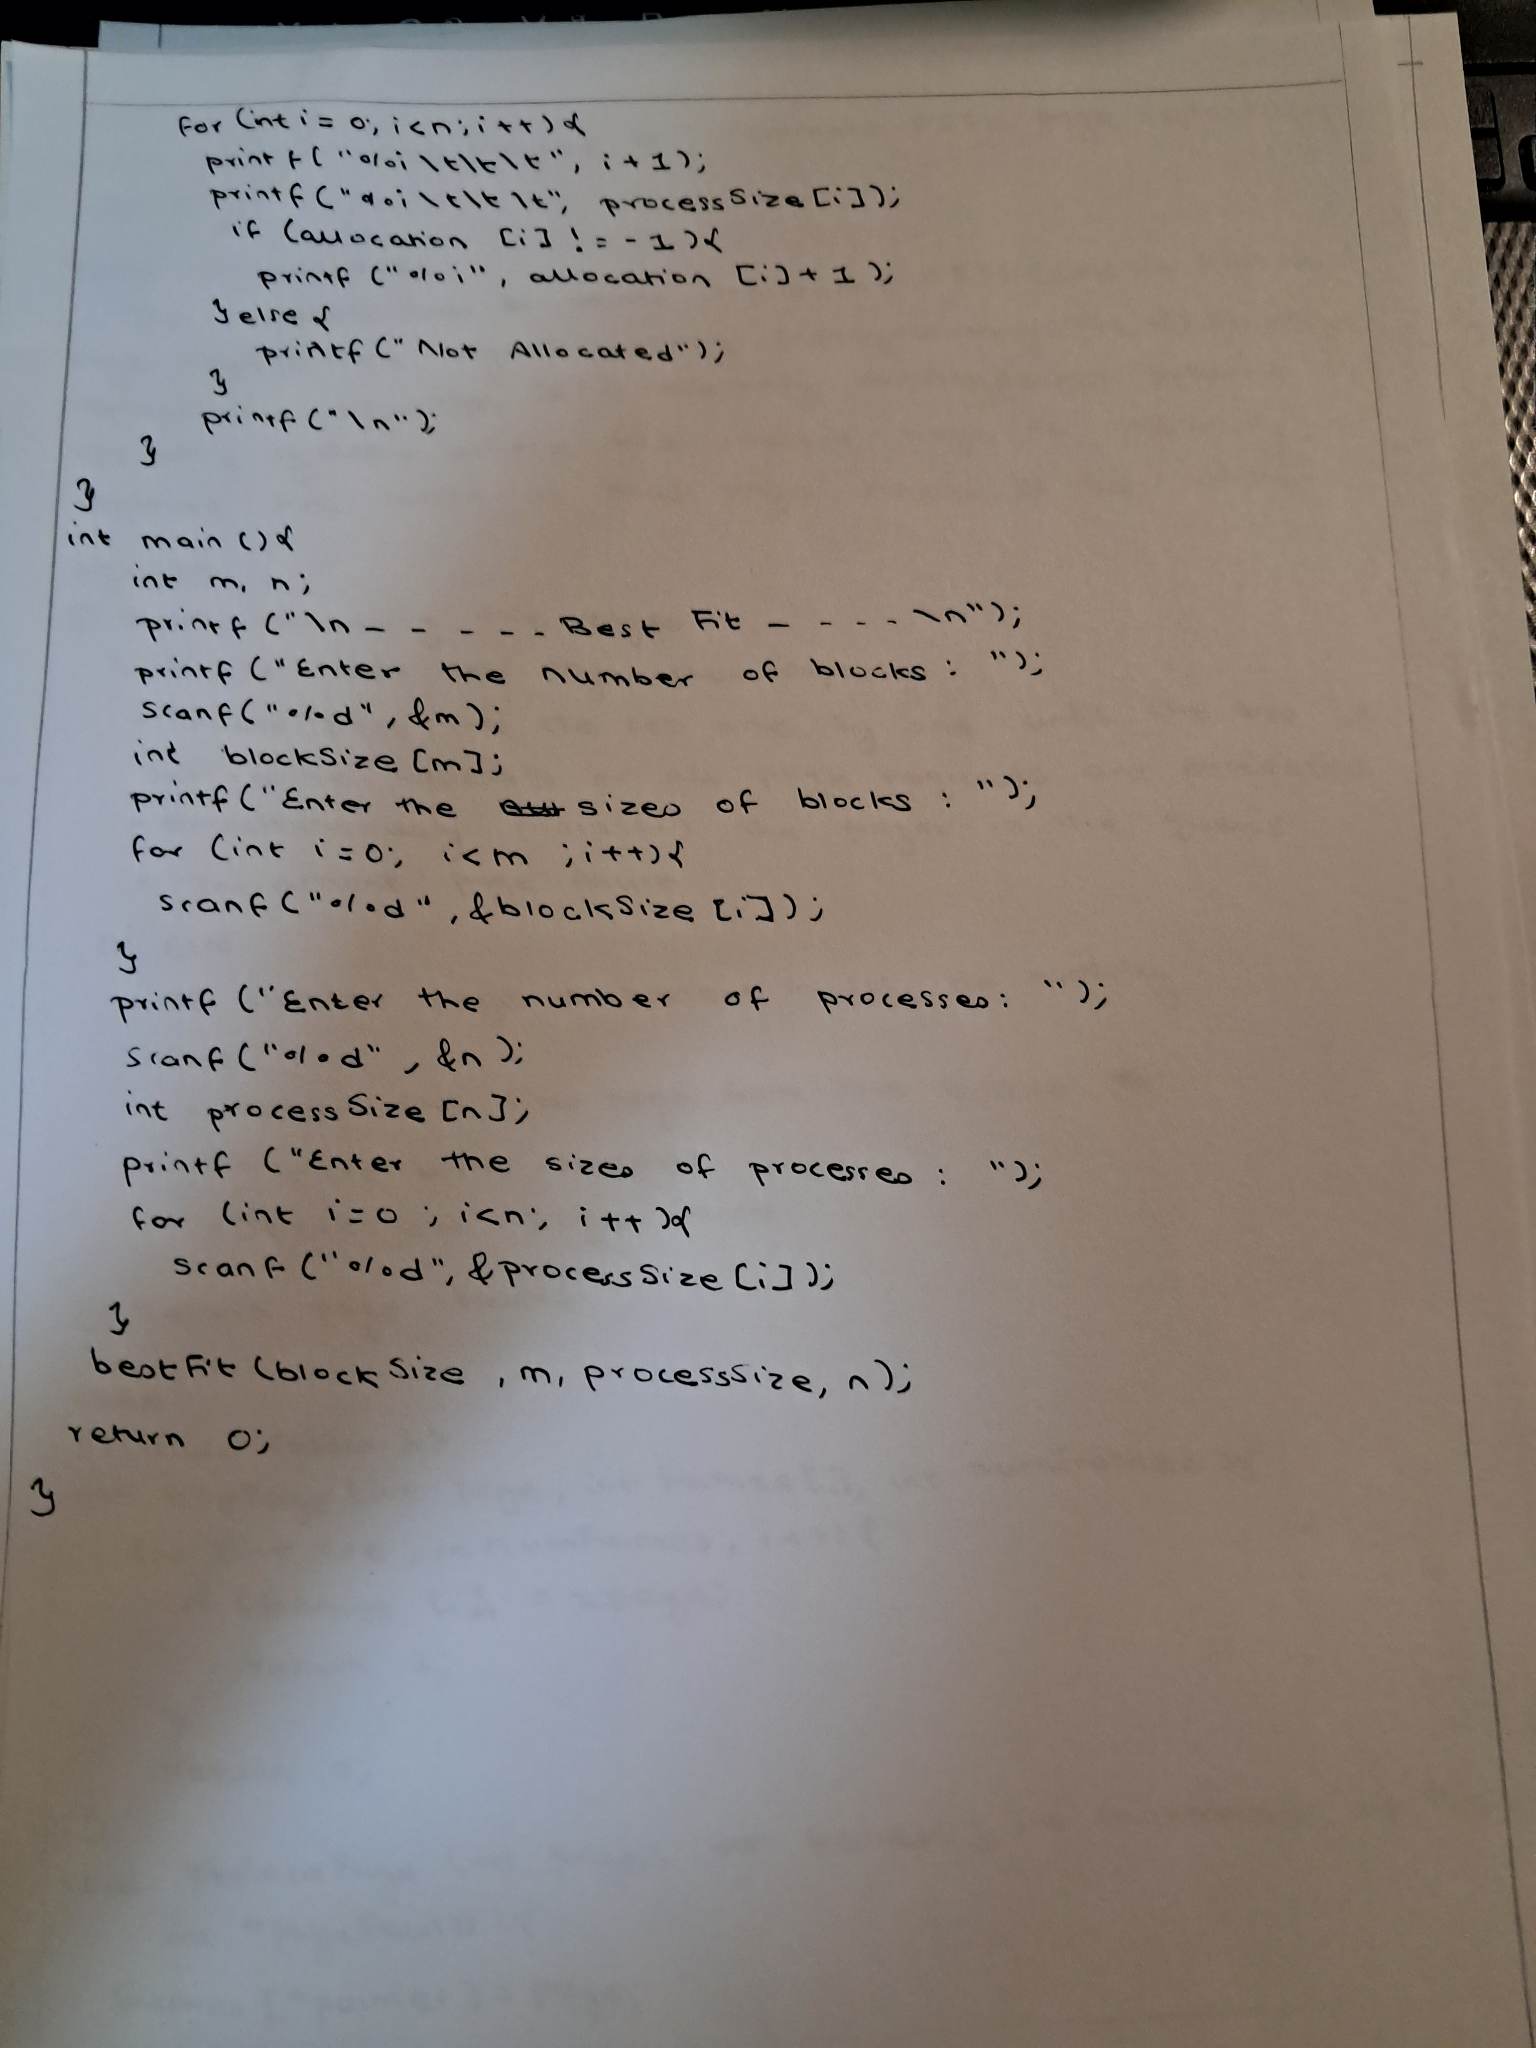 for (int i = 0; i<n; i++){
printf("%i\t\t\t", i+1);
printf("%i\t\t\t", processSize[i]);
if (allocation [i] != -1){
printf ("%i", allocation [i]+1);
}else{
printf("Not Allocated");
}
printf("\n");
}
}
int main(){
int m, n;
printf ("\n- - - - - - Best Fit - - - - - \n");
printf ("Enter the number of blocks : ");
scanf("%d", &m);
int blockSize [m];
printf("Enter the sizes of blocks : ");
for (int i=0; i<m ;i++){
scanf("%d", &blockSize [i]);
}
printf ("Enter the number of processes: ");
scanf("%d", &n);
int processSize [n];
printf ("Enter the sizes of processes : ");
for (int i=0 ; i<n; i++){
scanf("%d", &processSize [i]);
}
bestFit (blockSize , m, processSize, n);
return 0;
}